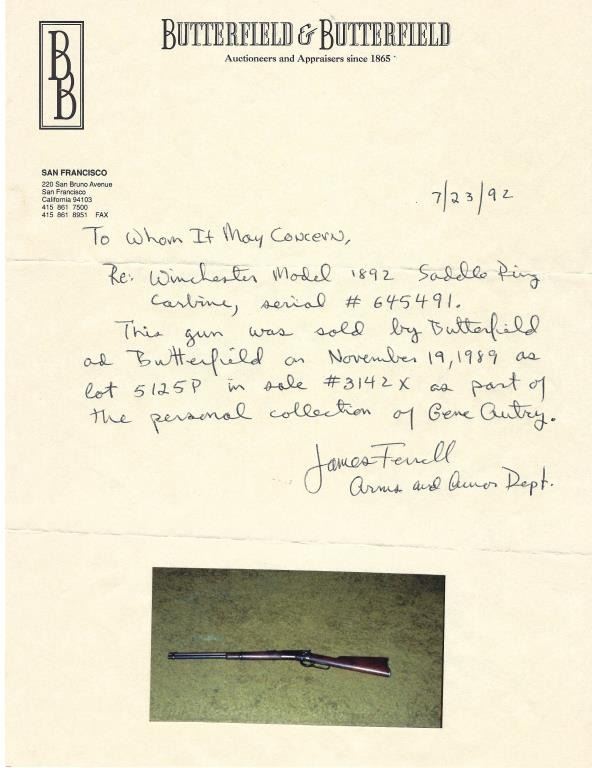 BB
BUTTERFIELD & BUTTERFIELD
Auctioneers and Appraisers since 1865
SAN FRANCISCO
220 San Bruno Avenue
San Francisco
California 94103
415 861 7500
415 861 8951 FAX
7/23/92
To Whom It May Concern,
Re: Winchester Model 1892 Saddle Ring
Carbine, serial # 645491.
This gun was sold by Butterfield
ad Butterfield on November 19, 1989 as
lot 5125P in sale #3142X as part of
the personal collection of Gene Autry.
James Ferrell
Arms and Armor Dept.